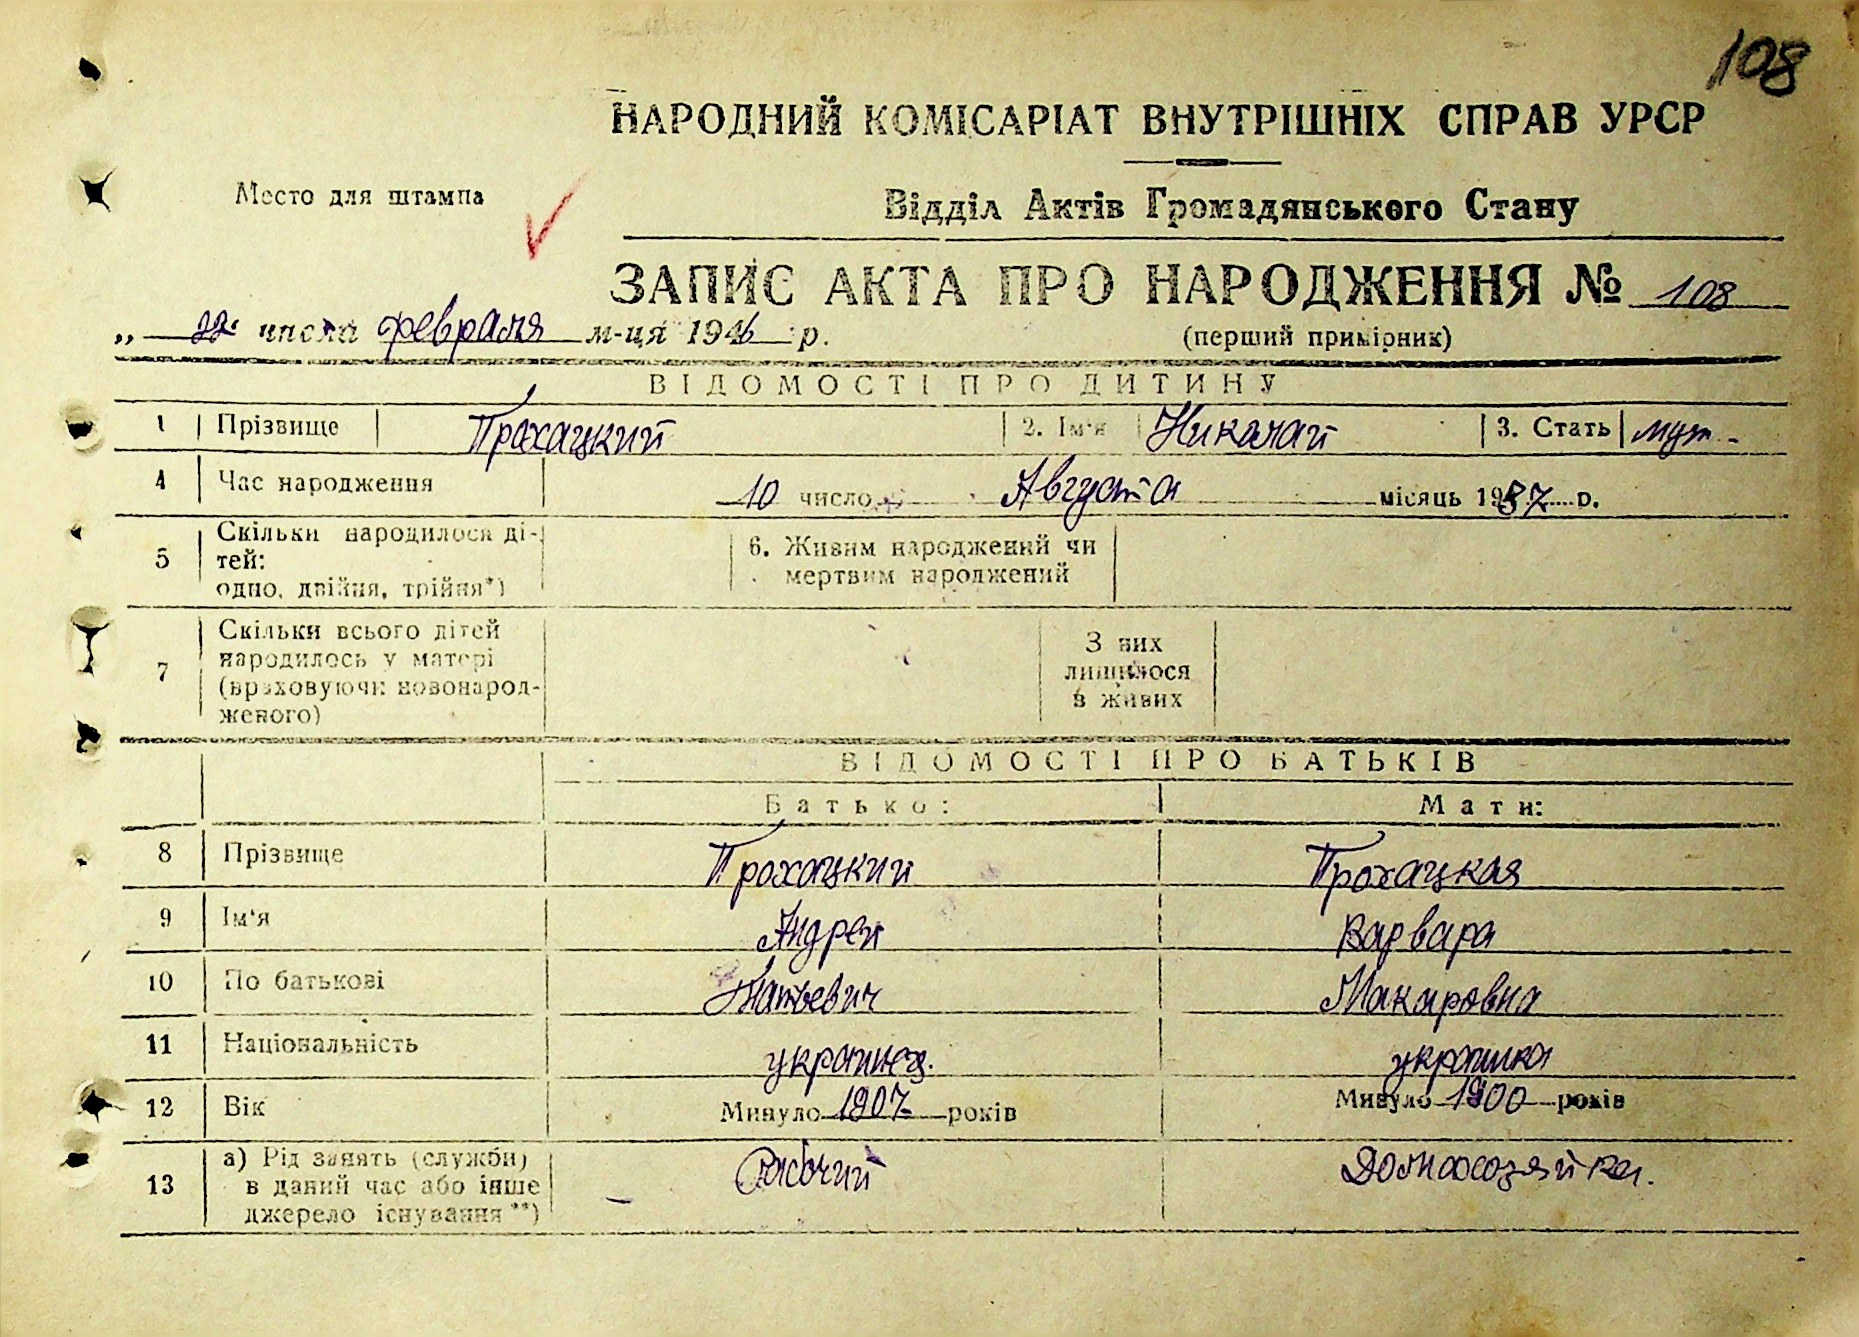 108
НАРОДНИЙ КОМІСАРІАТ ВНУТРІШНІХ СПРАВ УРСР
Место для штампа
Відділ Актів Громадянського Стану
ЗАПИС АКТА ПРО НАРОДЖЕННЯ № 108
„ 22 числа февраля м-ця 1946 р.
(перший примірник)
ВІДОМОСТІ ПРО ДИТИНУ
1 Прізвище Прохацкий 2. Ім'я Николай 3. Стать муж.
4 Час народження 10 число Августа місяць 1937 р.
5 Скільки народилося ді-
тей:
одно, двійня, трійня*)
6. Живим народжений чи
мертвим народжений
7 Скільки всього дітей
народилось у матері
(враховуючи новонарод-
женого)
З них
лишилося
в живих
ВІДОМОСТІ ПРО БАТЬКІВ
Батько: Мати:
8 Прізвище Прохацкий Прохацкая
9 Ім'я Андрей Варвара
10 По батькові Макаровна
11 Національність украинец. украинка
12 Вік Минуло 1907 років Минуло 1900 років
13 а) Рід занять (служби)
в даний час або інше
джерело існування**)
Рабочий Домохозяйка.